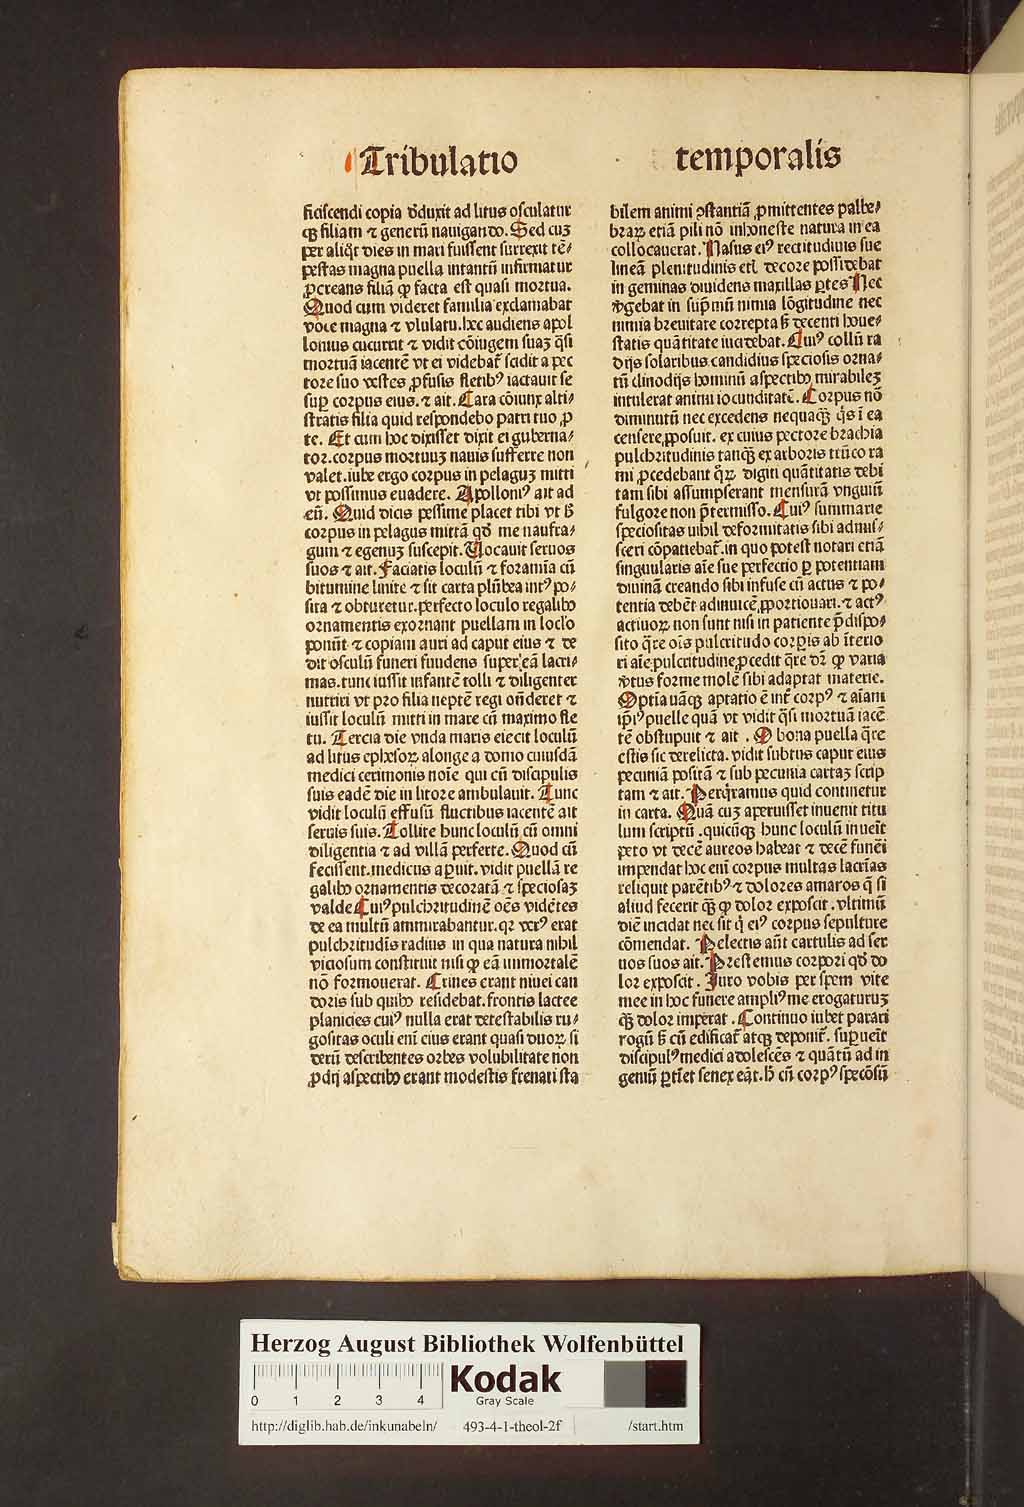 Tribulatio
temporalis
ficiscendi copia ꝺduxit ad litus osculatur
ꝙ filiam ⁊ generū nauigando. Sed cuꝫ
per aliq̇t dies in mari fuissent surrexit tē⸗
pestas magna puella intantū infirmatur
ꝓcreans filiā ꝙ facta est quasi mortua.
Quod cum videret familia exclamabat
voce magna ⁊ vlulatu. hec audiens apol
lonius cucurrit ⁊ vidit cōiugem suaꝫ q̄si
mortuā iacentē vt ei videbat̄ scidit a pec
tore suo vestes ꝓfusis fletibꝰ iactauit se
suꝑ corpus eius. ⁊ ait. Cara cōiunx alti⸗
stratis filia quid respondebo patri tuo ꝓ
te. Et cum hoc dixisset dixit ei guberna⸗
tor. corpus mortuuꝫ nauis sufferre non
valet. iube ergo corpus in pelaguꝫ mitti
vt possimus euadere. Apolloniꝰ ait ad
eū. Quid dicis pessime placet tibi vt ħ
corpus in pelagus mittā qð me naufra⸗
gum ⁊ egenuꝫ suscepit. Uocauit seruos
suos ⁊ ait. Faciatis loculū ⁊ foramīa cū
bitumine linite ⁊ sit carta plūbea intꝰ po⸗
sita ⁊ obturetur. perfecto loculo regalibꝫ
ornamentis exornant puellam in loc̄lo
ponūt ⁊ copiam auri ad caput eius ⁊ de
dit osculū funeri fundens super eā lacri⸗
mas. tunc iussit infantē tolli ⁊ diligenter
nutriri vt pro filia neptē regi oñderet ⁊
iussit loculū mitti in mare cū maximo fle
tu. Tercia die vnda maris eiecit loculū
ad litus ephesoꝝ alonge a domo cuiusdā
medici cerimonis noīe qui cū discipulis
suis eadē die in litore ambulauit. Tunc
vidit loculū effusū fluctibus iacentē ait
seruis suis. Tollite hunc loculū cū omni
diligentia ⁊ ad villā perferte. Quod cū
fecissent. medicus aꝑuit. vidit puellā re
galibꝫ ornamentis decoratā ⁊ speciosaꝫ
valde Cuiꝰ pulchritudinē oēs vidētes
de ea multū ammirabantur. qꝛ verꝰ erat
pulchritudīs radius in qua natura nihil
viciosum constituit nisi ꝙ eā immortalē
nō formouerat. Crines erant niuei can
doris sub quibꝫ residebat. frontis lactee
planicies cuiꝰ nulla erat detestabilis ru⸗
gositas oculi enī eius erant quasi duoꝝ si
derū describentes orbes volubilitate non
ꝓdij aspectibꝫ erant modestis frenati sta
bilem animi ꝯstantiā ꝓmittentes palbe⸗
braꝝ etiā pili nō inhoneste natura in ea
collocauerat. Nasus eiꝰ rectitudinis sue
lineā plenitudinis etī decore possidebat
in geminas diuidens maxillas ꝑtes Nec
ꝟgebat in suꝑmū nimia lōgitudine nec
nimia breuitate correpta ẜ decenti hone⸗
statis quātitate iucidebat. Cuiꝰ collū ra
dijs solaribus candidius speciosis orna⸗
tū clinodijs hominū aspectibꝫ mirabileꝫ
intulerat animi iocunditatē. Corpus nō
diminutū nec excedens nequaqꝫ q̇s ī ea
censere ꝓposuit. ex cuius pectore brachia
pulchritudinis tanqꝫ ex arboris trūco ra
mi ꝓcedebant q̇ꝝ digiti quātitatis debi
tam sibi assumpserant mensurā vnguiū
fulgore non p̄termisso. Cuiꝰ summarie
speciositas nihil deformitatis sibi admis⸗
sceri cōpatiebat̄. in quo potest notari etiā
singularis aīe sue perfectio ꝑ potentiam
diuinā creando sibi infuse cū actus ⁊ po⸗
tentia debēt adinuicē ꝓportionari. ⁊ actꝰ
actiuoꝝ non sunt nisi in patiente p̄dispo⸗
sito q̄re oīs pulcritudo corꝑis ab īterio
ri aīe pulcritudine ꝓcedit q̄re dr̄ ꝙ varia
ꝟtus forme molē sibi adaptat materie.
Optīa uāꝙ aptatio ē int̄ corpꝰ ⁊ aīam
ip̄iꝰ puelle quā vt vidit q̄si mortuā iacē
tē obstupuit ⁊ ait . O bona puella q̄re
estis sic derelicta. vidit subtus caput eius
pecuniā positā ⁊ sub pecunia cartaꝫ scrip
tam ⁊ ait. Perq̇ramus quid continetur
in carta. Quā cuꝫ aperuisset inuenit titu
lum scriptū . quicūqꝫ hunc loculū inueīt
peto vt decē aureos habeat ⁊ decē funēi
impendat hoc enī corpus multas lacrīas
reliquit parētibꝰ ⁊ dolores amaros q̄ si
aliud fecerit qꝫ ꝙ dolor exposcit . vltimū
diē incidat nec sit q̇ eiꝰ corpus sepulture
cōmendat. Pelectis aūt cartulis ad ser
uos suos ait. Prestemus corpori qð do
lor exposcit . Juro vobis per spem vite
mee in hoc funere ampliꝰ me erogaturuꝫ
qꝫ dolor imperat . Continuo iubet parari
rogū ẜ cū edificat̄ atqꝫ deponit̄. suꝑueīt
discipulꝰ medici adolescēs ⁊ quātū ad in
geniū ꝑtīet senex eāt. ħ cū corpꝰ specōsū
Herzog August Bibliothek Wolfenbüttel
0 1 2 3 4
Kodak
Gray Scale
http://diglib.hab.de/inkunabeln/ 493-4-1-theol-2f /start.htm